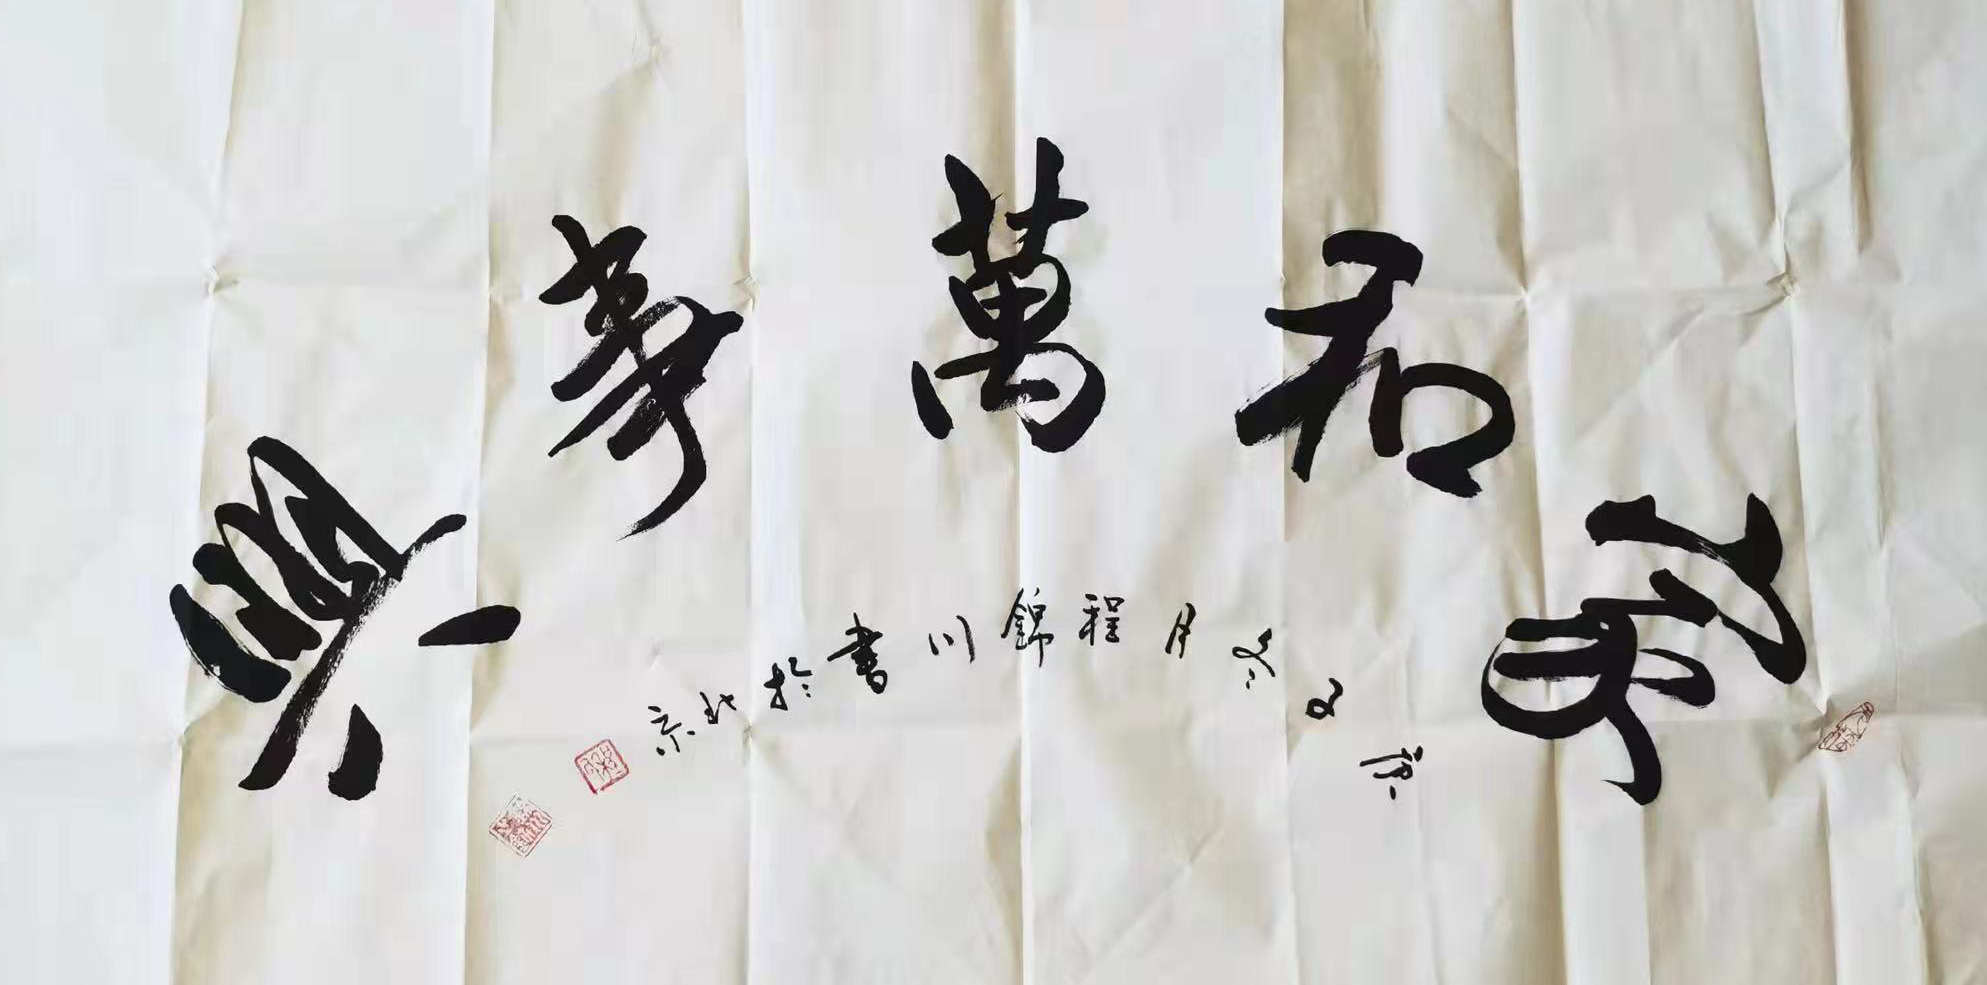 家和萬事興
冬月程錦川書於北京